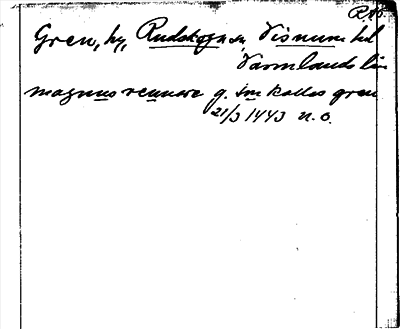 RAp.
Gren, by, Rudskoga sn, Visnums hd
Värmlands län
magnus rennere g. sm kallas gren
21/3 1443 n.o.